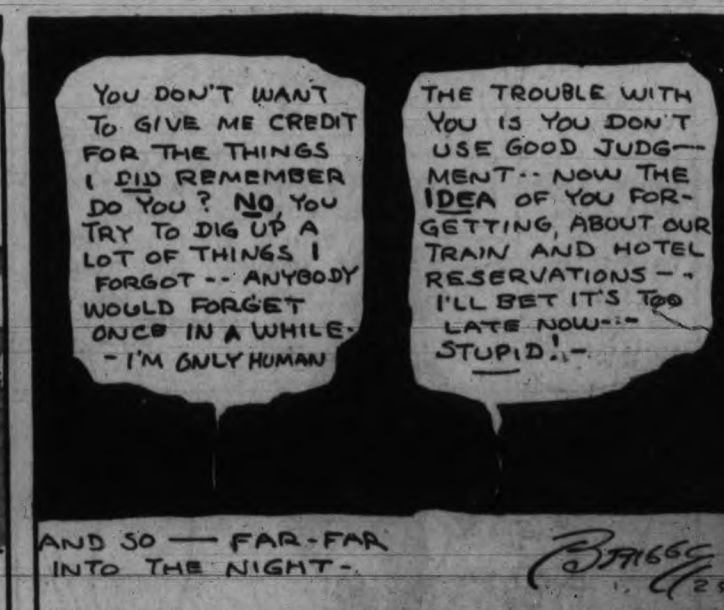 YOU DON'T WANT
TO GIVE ME CREDIT
FOR THE THINGS
I DID REMEMBER
DO YOU? NO, YOU
TRY TO DIG UP A
LOT OF THINGS I
FORGOT -- ANYBODY
WOULD FORGET
ONCE IN A WHILE-
- I'M ONLY HUMAN
THE TROUBLE WITH
YOU IS YOU DON'T
USE GOOD JUDG—
MENT -- NOW THE
IDEA OF YOU FOR-
GETTING, ABOUT OUR
TRAIN AND HOTEL
RESERVATIONS --
I'LL BET IT'S TOO
LATE NOW---
STUPID!-
AND SO — FAR-FAR
INTO THE NIGHT-
BRIGGS